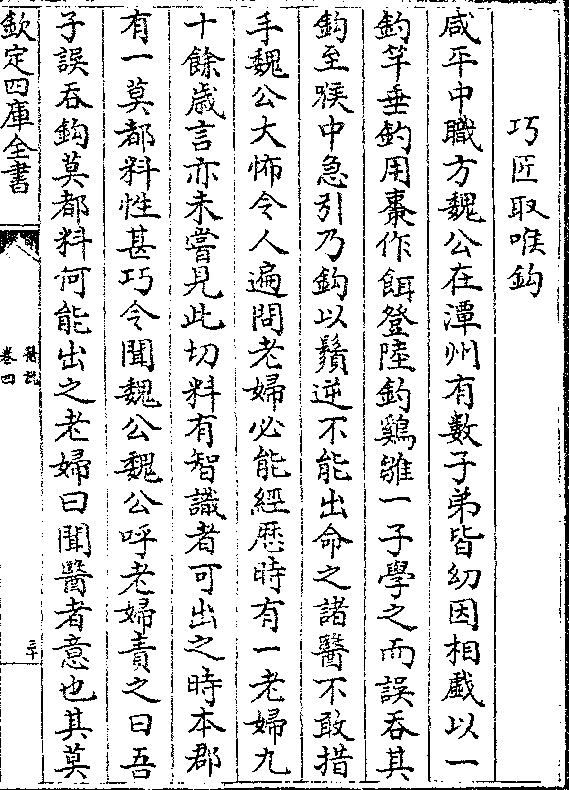 巧匠取喉鈎
咸平中職方魏公在潭州有數子弟皆幼因相戲以一
釣竿垂釣用棗作餌登陸釣鷄雛一子學之而誤吞其
鈎至喉中急引乃鈎以鬚逆不能出命之諸醫不敢措
手魏公大怖令人遍問老婦必能經歴時有一老婦九
十餘歳言亦未嘗見此切料有智識者可出之時本郡
有一莫都料性甚巧令聞魏公魏公呼老婦責之曰吾
子誤吞鈎莫都料何能出之老婦曰聞醫者意也其莫
欽定四庫全書
醫説
卷四
二十